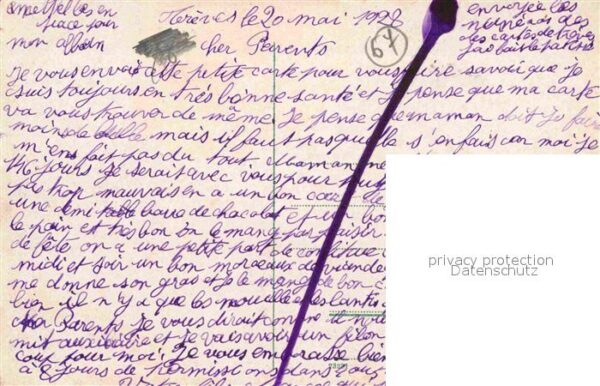 mettes les en
place pour
mon album
Trèves le 20 mai 1928
envoyée les
numéros des
des cartes de Trèves
67
cher Parents
Je vous envois cette petite carte pour vous dire savoir que je
suis toujours en très bonne santé et je pense que ma carte
va vous trouver de même. Je pense que maman doit
mais il faut pas quelle s'en fais car moi je
m'en fait pas du tout maman
46 jours je serait avec vous pour
pas trop mauvais en a un bon
une demi boue de chocolat et un bon
le pain et très bon on le mange par plaisir
de fête on a une petite part de confiture
midi et soir un bon morceaux de viande
me donne son gras et je le mange de bon
bien il n'y a que les nouilles et les
cher Parents je vous dirait comme
mit auxiliaire et je vais avoir un
coup pour moi. Je vous embrasse bien
à 8 jours de permissions dans
privacy protection
Datenschutz